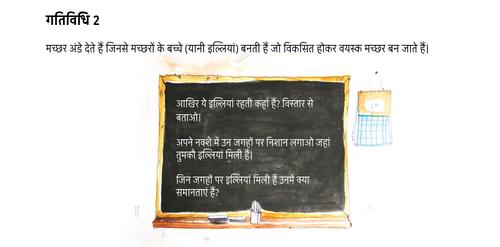 गतिविधि 2
मच्छर अंडे देते हैं जिनसे मच्छरों के बच्चे (यानी इल्लियां) बनती हैं जो विकसित होकर वयस्क मच्छर बन जाते हैं।
आखिर ये इल्लियां रहती कहां हैं? विस्तार से
बताओ।
अपने नक्शे में उन जगहों पर निशान लगाओ जहां
तुमको इल्लियां मिली हैं।
जिन जगहों पर इल्लियां मिली हैं उनमें क्या
समानताएं हैं?